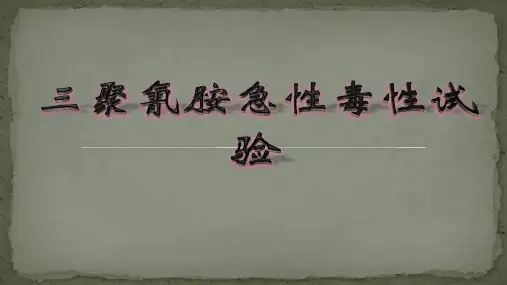 三聚氰胺急性毒性试
验